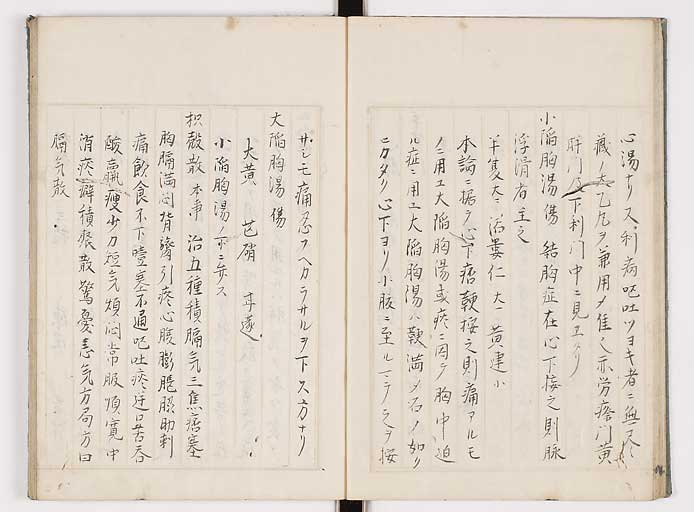 心湯ナリス利病嘔吐ツヨキ者ニ無尽
蔵ノ太乙丸ヲ兼用メ佳ク亦労瘵門黄
肝門及下利門中ニ見エタリ
小陥胸湯傷 結胸症在心下按之則脉
浮滑者主之
半夏大 活蔞仁大 黄連小
本論ニ拠テ心下痞鞕按之則痛アルモ
ノニ用エ大陥胸湯或疼ニ因テ胸中迫
ル症ニ用エ大陥胸湯ハ鞕満メ石ノ如リ
ニカタク心下ヨリ小腹ニ至ルマテ之ヲ按
サシモ痛忍フヘカラサルヲ下ス方ナリ
大陥胸湯傷
大黄 芒硝 甘遂
小陥胸湯ノ下ニ弁ス
枳殻散本事 治五種積膈気三焦痞塞
胸膈満悶背膂引疼心腹膨脹脇肋刺
痛飲食不下噎塞不通嘔吐痰逆口苦吞
酸羸瘦少力短気煩悶常服順寛中
消痰癖積聚散驚憂恚気方局方曰
膈気散